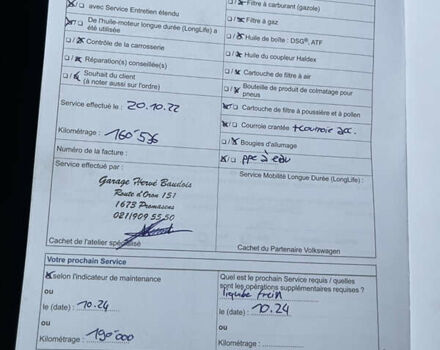 avec Service Entretien étendu
De l'huile-moteur longue durée (LongLife) a
été utilisée
Contrôle de la carrosserie
Réparation(s) conseillée(s)
Souhait du client
(à noter aussi sur l'ordre)
Service effectué le : 20.10.22
Kilométrage : 160'536
Numéro de la facture :
Service effectué par :
Garage Hervé Baudois
Route d'Oron 151
1673 Promasens
021/909 55 50
Cachet de l'atelier spécialisé
Filtre à carburant (gazole)
Filtre à gaz
Huile de boîte : DSG®, ATF
Huile du coupleur Haldex
Cartouche de filtre à air
Bouteille de produit de colmatage pour
pneus
Cartouche de filtre à poussière et à pollen
Courroie crantée + courroie acc.
Bougies d'allumage
ppe à eau
Service Mobilité Longue Durée (LongLife) :
Cachet du Partenaire Volkswagen
Votre prochain Service
selon l'indicateur de maintenance
ou
le (date) : 10.24
ou
Kilométrage : 190'000
Quel est le prochain Service requis / quelles
sont les opérations supplémentaires requises ?
liquide frein
ou
le (date) : 10.24
ou
Kilométrage :